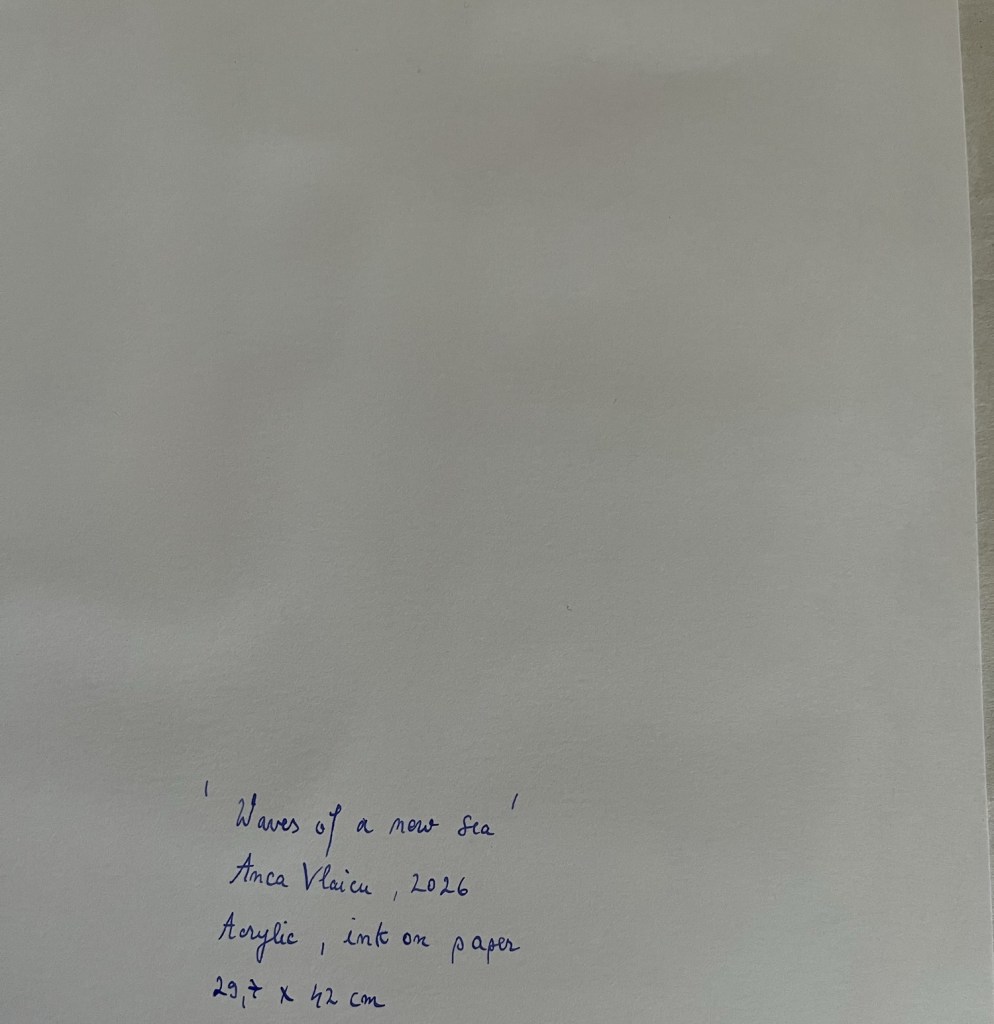 ' Waves of a new sea '
Anca Vlaicu , 2026
Acrylic , ink on paper
29,7 x 42 cm